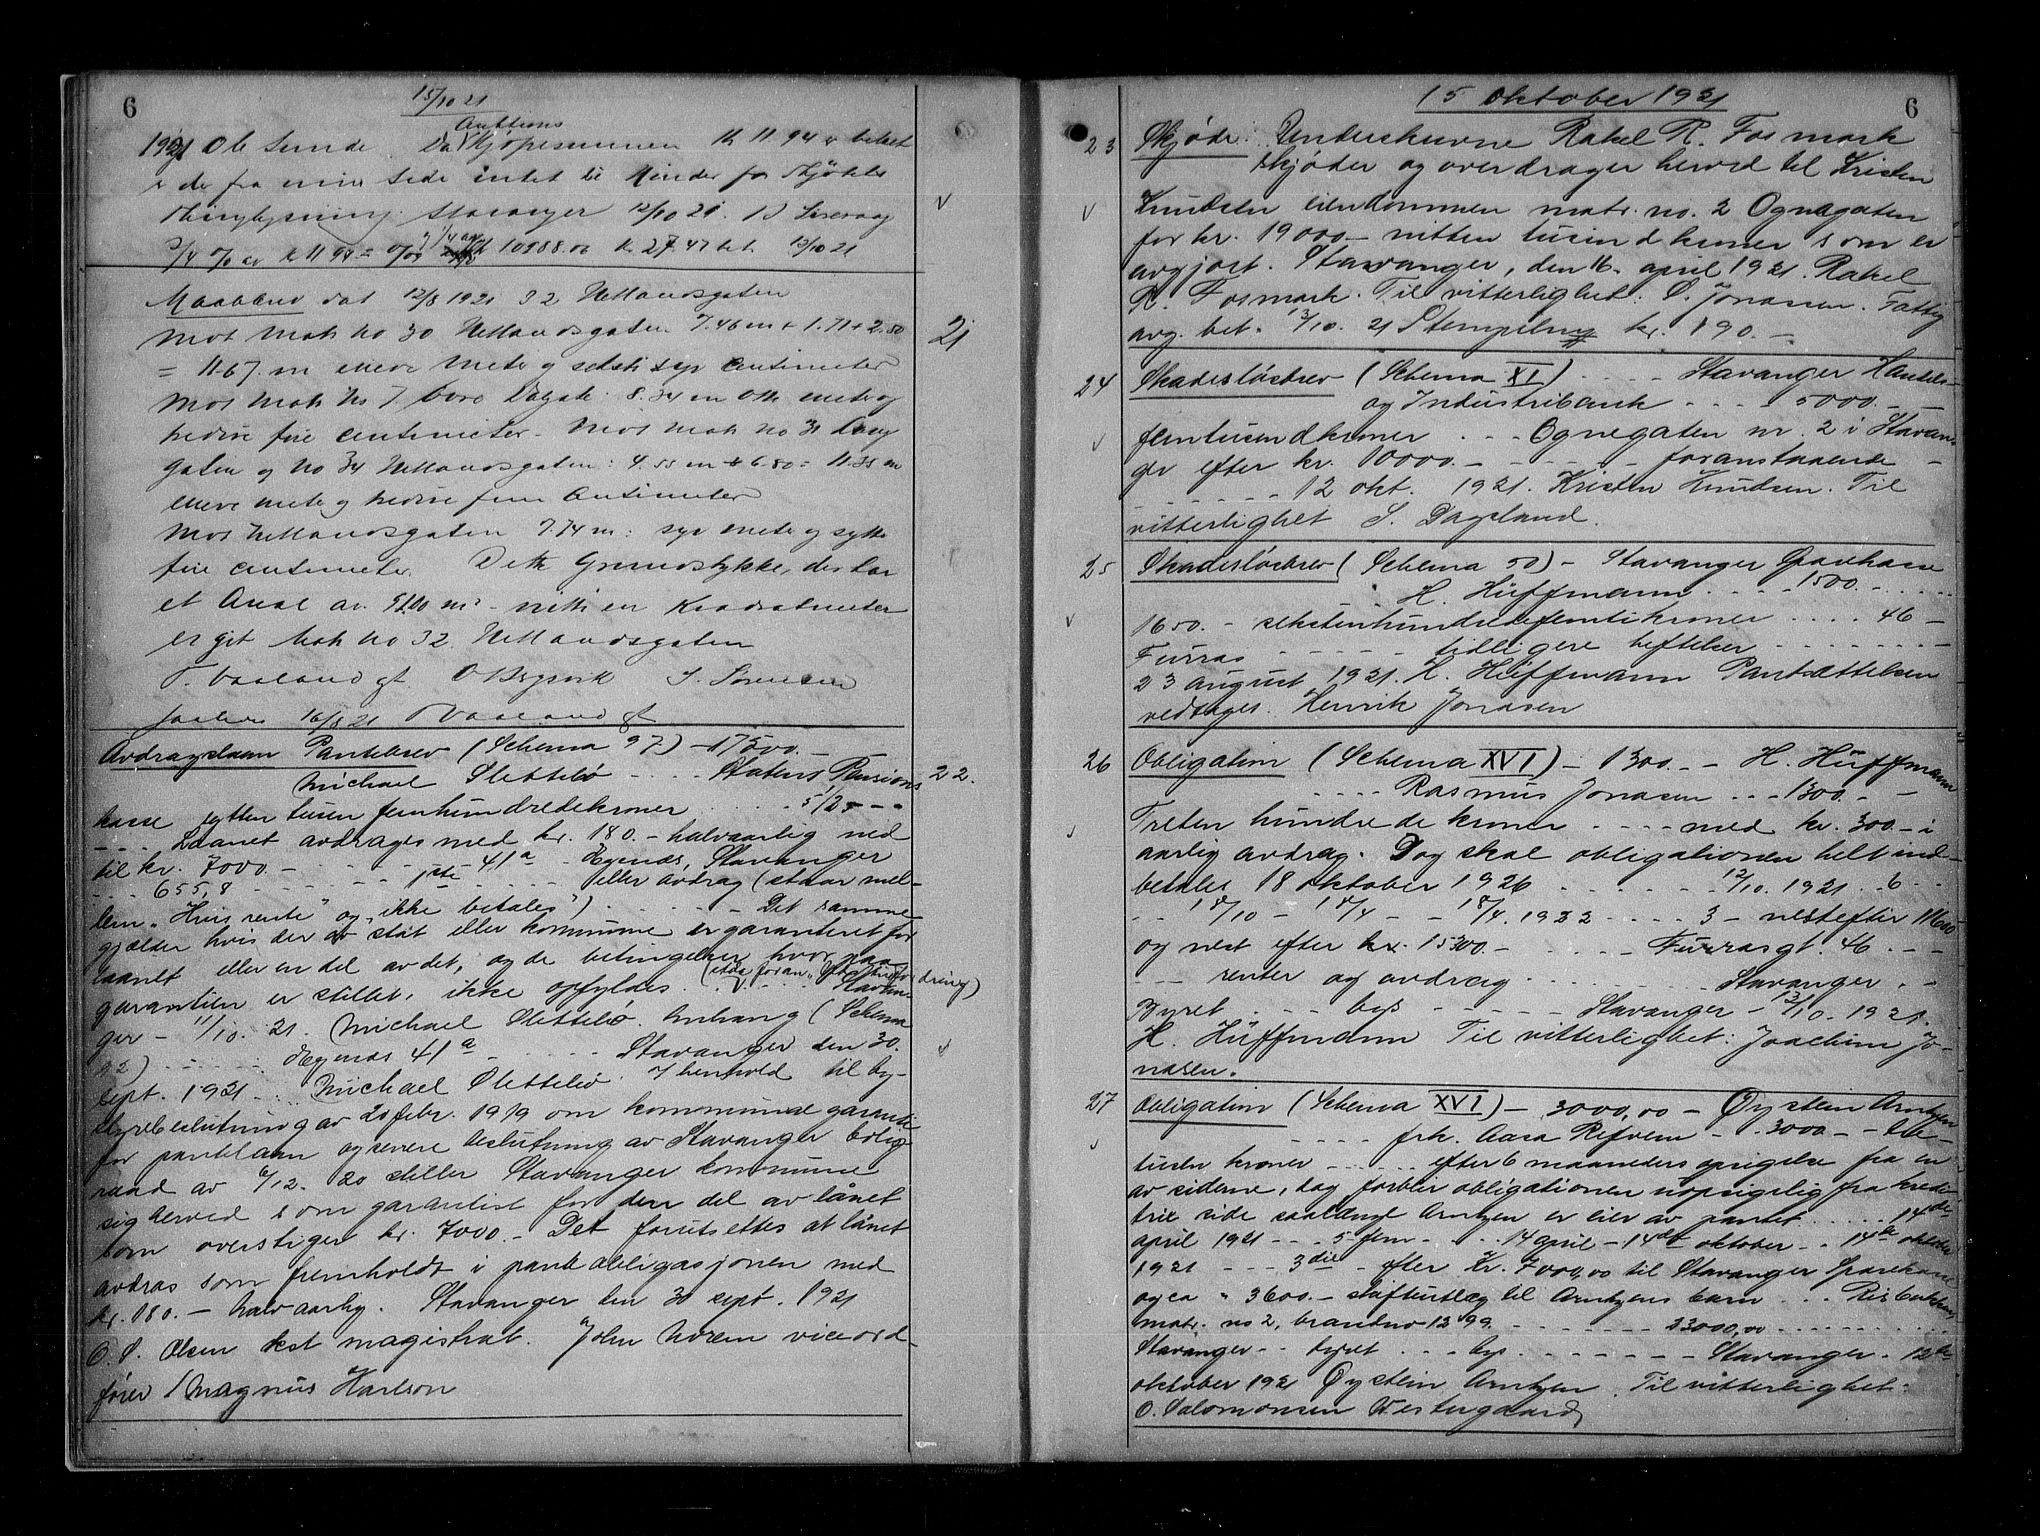 6
15/10 21
Auktions
1921 Ole Sunde Da Kjøpesummen kr 1194 er betalt
er der fra min side intet til Hinder for Skjøtets
thinglysning. Stavanger 12/10 21.
kr 27.47 bet. 13/10 21
Maalebrev dat 12/8 1921 32 Hetlandsgaten
21
mot Matr No 30 Hetlandsgaten 7.46 m + 1.71 + 2.50
= 11.67 m elleve meter og sekstisyv centimeter
mot Matr No 7 8.34 m otte meter og
tredive fire centimeter. Mot Matr no 31
gaten og No 34 Hetlandsgaten: 4.55 m + 6.80 = 11.35 m
elleve meter og tredive fem centimeter
mot Hetlandsgaten 7.74 m: syv meter og sytti
fire centimeter. Dette Grundstykke, der har
et Areal av 91.00 m² nitti en Kvadratmeter
er git Matr No 32 Hetlandsgaten
T. Vaaland gf. O Bergsvik S. Sørensen
16/8 21 T Vaaland gf
Avdragslaan Pantebrev (Schema 97) – 17500. –
22.
Michael Slettebø . . . . Statens Pensions
kasse sytten tusen femhundredekroner . . . . 5 1/2 – – –
– – – Laanet avdrages med kr. 180. – halvaarlig ned
til kr. 7000. – – – – 41a – Egenæs, Stavanger
– – – 655,8 – – – – 1ste – – – eller avdrag (staar mel-
lem „Hvis rente" og „ikke betales") . . . . . – Det samme
gjælder hvis der av stat eller kommune er garanteret for
laanet eller en del av det, og de betingelser hvorpaa
garantien er stillet, ikke opfyldes. . . . . . Stavan-
ger – 11/10. 21. Michael Slettebø. Anhang (Schema
92) . . . . . Egenæs 41a – . . . . . Stavanger den 30.
sept. 1921 . . . Michael Slettebø. I henhold til by-
styrebeslutning av 20 febr. 1919 om kommunal garanti
for pantelaan og senere beslutning av Stavanger bolig
raad av 6/12. 20 stiller Stavanger kommune
sig herved som garantist for den del av lånet
som overstiger kr. 7000. – Det forutsettes at lånet
avdras som fremholdt i panteobligasjonen med
kr. 180. – halvaarlig. Stavanger den 30 sept. 1921
O. S. Olsen kst magistrat. John Norem viceord-
fører / Magnus Karlson
15 oktober 1921
6
23
Skjøde: Underskrevne Rakel R. Fosmark
skjøder og overdrager herved til Kristen
Knudsen eiendommen matr. no. 2 Ognagaten
for kr. 19000 – nitten tusind kroner som er
avgjort. Stavanger, den 16. april 1921. Rakel
R. Fosmark. Til vitterlighet: O. Jonassen. Fattig
avg. bet. 13/10. 21 Stempelavg kr. 190. –
24
Skadesløsbrev (Schema XI) . . . – Stavanger Handels-
og Industribank . . . . 5000. –
femtusendkroner . . . Ognegaten nr. 2 i Stavan-
ger efter kr. 10000. – – – – – foranstaaende –
. . . . . 12 okt. 1921. Kristen Knudsen. Til
vitterlighet S. Dagsland.
25
Skadesløsbrev (Schema 50) – Stavanger Sparekasse
. . . H. Hüffmann . . . . 1500. . . . .
1650. – sekstenhundredefemtikroner . . . . 46 –
Furras – – – – – tidligere heftelser . . . . . . . .
23 august 1921. H. Hüffmann Pantsættelsen
vedtages. Henrik Jonasen
26
Obligation (Schema XVI) – 1300. – – H. Hüffmann
. . . . Rasmus Jonasen . . . 1300. –
Tretten hundrede kroner . . . . med kr. 300 – i
aarlig avdrag. Dog skal obligationen helt ind-
betales 18 oktober 1926 . . . . . . 12/10. 1921. . 6 . .
. . 18/10 – 18/4 – – 18/4. 1922 . . . . 3 – nestefter 11600
og nest efter kr. 15300. – . . . Furrasgt. 46. – –
– – – renter og avdrag . . . . . . . Stavanger . .
Byret . . . – bys – – – – – Stavanger – 13/10. 1921.
H. Hüffmann Til vitterlighet: Joachim Jo-
nasen.
27
Obligation (Schema XVI) – 3000,00 – Øystein Arntzen
. . . . frk. Aasa Refvem – . 3000. – – tre
tusen kroner . . . . . efter 6 maaneders opsigelse fra en
av siderne, dog forblir obligationen uopsigelig fra kredi-
tors side saalænge Arntzen er eier av pantet . . . . . 14de
april 1921 – – . 5 – fem – . . 14 april – 14de oktober – . 14de oktober
1921 – – – 3die – efter Kr. 7000,00 til Stavanger Sparekasse
og ca " 3600. – skifteutlæg til Arntzens barn . . . Risbakken
matr. no 2, brandno 1299 – – – – – – 23000,00 . . . . . . . .
Stavanger – . byret – . . bys – – – – – Stavanger. 12te
oktober 1921 Øystein Arntzen. Til vitterlighet:
O. Salomonsen Westergaard